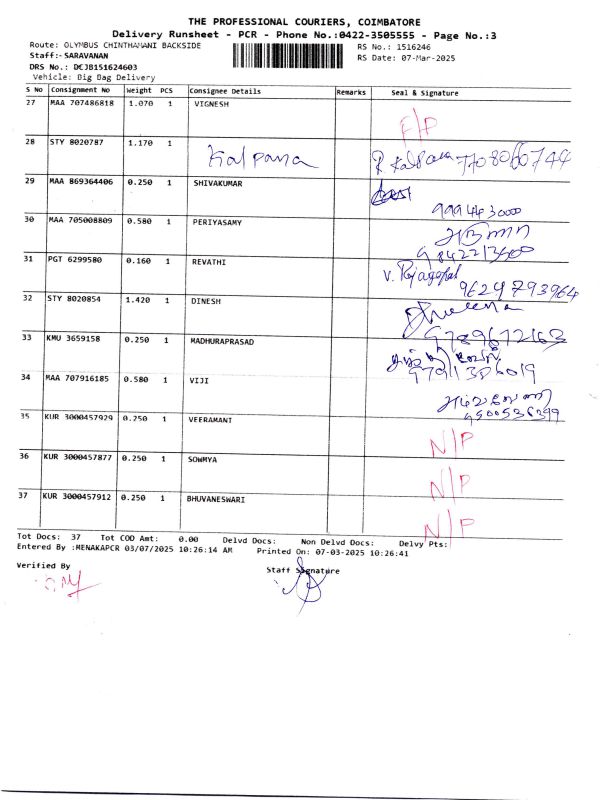 THE PROFESSIONAL COURIERS, COIMBATORE
Delivery Runsheet - PCR - Phone No.:0422-3505555 - Page No.:3
Route: OLYMBUS CHINTHAMANI BACKSIDE RS No.: 1516246
Staff:- SARAVANAN RS Date: 07-Mar-2025
DRS No.: DCJB151624603
Vehicle: Big Bag Delivery
S No Consignment No Weight PCS Consignee Details Remarks Seal & Signature
27 MAA 707486818 1.070 1 VIGNESH
F/P
28 STY 8020787 1.170 1
Kalpana R. Kalpana 7708060744
29 MAA 869364406 0.250 1 SHIVAKUMAR
9994430000
30 MAA 705008809 0.580 1 PERIYASAMY
31 PGT 6299580 0.160 1 REVATHI
V. Rajagopal
9629793964
32 STY 8020854 1.420 1 DINESH
9789672163
33 KMU 3659158 0.250 1 MADHURAPRASAD
34 MAA 707916185 0.580 1 VIJI
9500536399
35 KUR 3000457929 0.250 1 VEERAMANT
N/P
36 KUR 3000457877 0.250 1 SOWMYA
N/P
37 KUR 3000457912 0.250 1 BHUVANESWARI
N/P
Tot Docs: 37 Tot COD Amt: 0.00 Delvd Docs: Non Delvd Docs: Delvy Pts:
Entered By :MENAKAPCR 03/07/2025 10:26:14 AM Printed On: 07-03-2025 10:26:41
Verified By Staff Signature